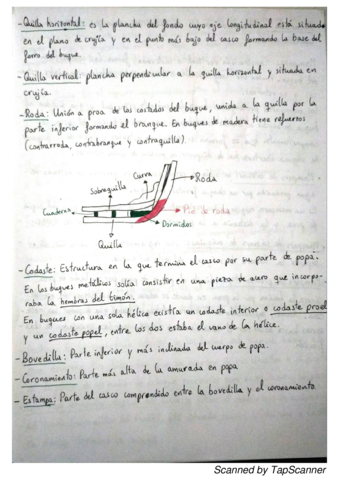 - Quilla horizontal: es la plancha del fondo cuyo eje longitudinal está situado
en el plano de crujía y en el punto más bajo del casco formando la base del
forro del buque.
- Quilla vertical: plancha perpendicular a la quilla horizontal y situada en
crujía.
- Roda: Unión a proa de los costados del buque, unida a la quilla por la
parte inferior formando el branque. En buques de madera tiene refuerzos
(contrarroda, contrabranque y contraquilla)
Curva
Roda
Sobrequilla
Cuaderna
Pie de roda
Dormidos
Quilla
- Codaste: Estructura en la que termina el casco por su parte de popa.
En los buques metálicos solía consistir en una pieza de acero que incorpo-
raba la hembras del timón.
En buques con una sola hélice existía un codaste interior o codaste proel
y un codaste popel, entre los dos estaba el vano de la hélice.
- Bovedilla: Parte inferior y más inclinada del cuerpo de popa.
- Coronamiento: Parte más alta de la amurada en popa
- Estampa: Parte del casco comprendido entre la bovedilla y el coronamiento.
Scanned by TapScanner